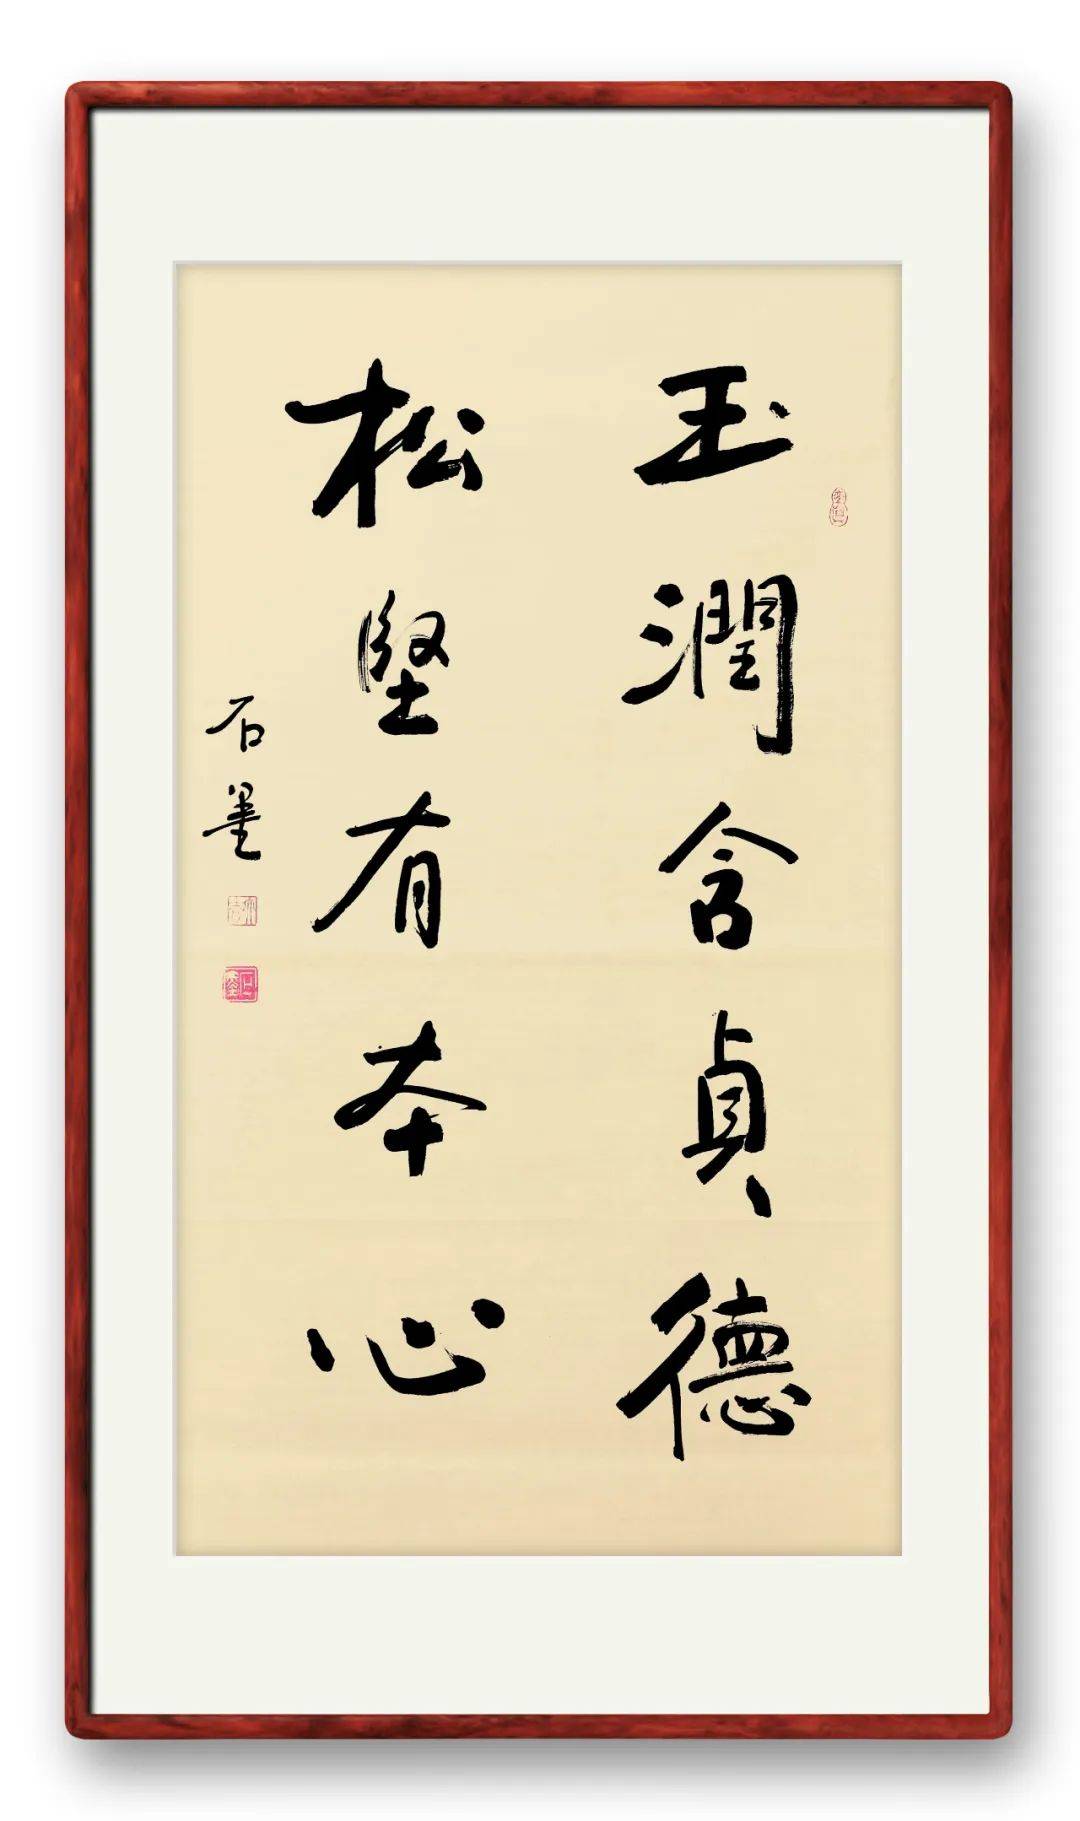 玉潤含貞德
松堅有本心
石墨